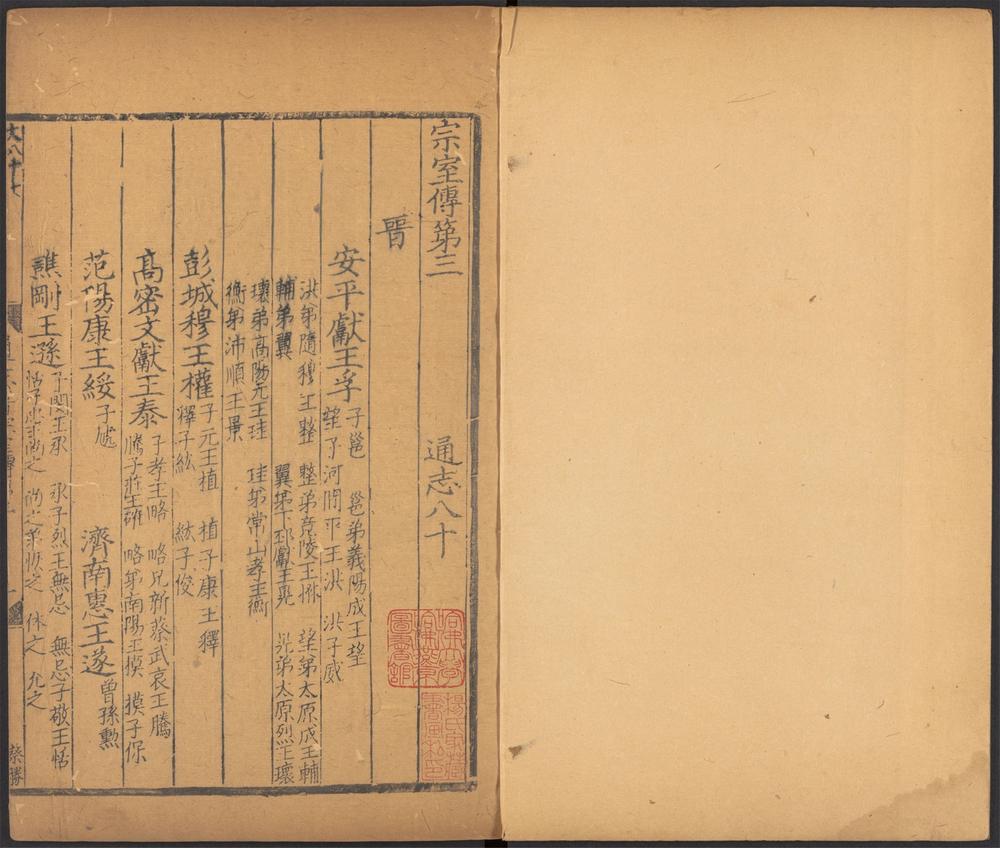 宗室傳第三 通志八十
晉
安平獻王孚 子邕 邕弟義陽成王望
望子河間平王洪 洪子威
洪弟隨穆王整 整弟竟陵王楙 望弟太原成王輔
輔弟翼 翼弟下邳獻王晃 晃弟太原烈王瓌
瓌弟高陽元王珪 珪弟常山孝王衡
衡弟沛順王景
彭城穆王權 子元王植 植子康王釋
釋子紘 紘子俊
高密文獻王泰 子孝王略 略兄新蔡武哀王騰
騰子莊王確 略弟南陽王模 模子保
范陽康王綏 子虓 濟南惠王遂 曾孫勳
譙剛王遜 子閔王承 承子烈王無忌 無忌子敬王恬
恬子忠王尚之 尚之弟恢之 休之 允之
蔡勝